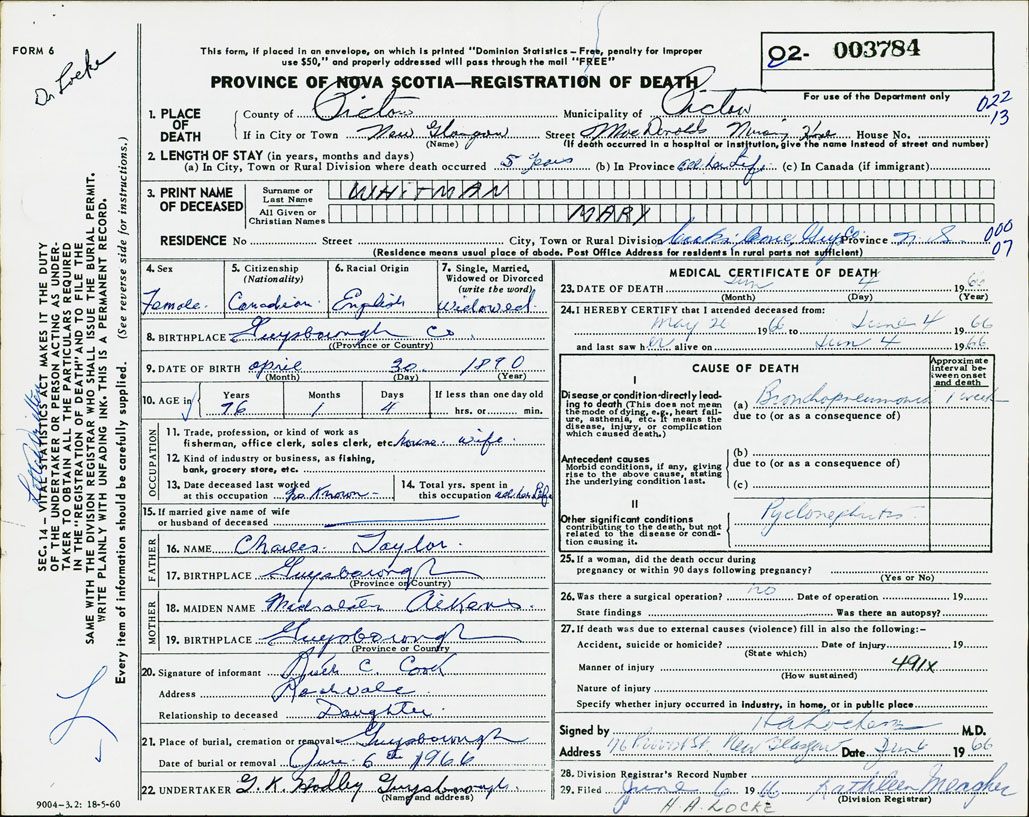 FORM 6
Dr Locke
This form, if placed in an envelope, on which is printed "Dominion Statistics – Free, penalty for improper
use $50," and properly addressed will pass through the mail "FREE"
PROVINCE OF NOVA SCOTIA—REGISTRATION OF DEATH
02- 003784
For use of the Department only
022
13
1. PLACE OF DEATH
County of Pictou Municipality of Pictou
If in City or Town New Glasgow Street MacDonalds Nursing Home House No.
(Name) (If death occurred in a hospital or institution, give the name instead of street and number)
2. LENGTH OF STAY (in years, months and days)
(a) In City, Town or Rural Division where death occurred 5 years (b) In Province all her Life (c) In Canada (if immigrant)
3. PRINT NAME OF DECEASED
Surname or Last Name WHITMAN
All Given or Christian Names MARY
RESIDENCE No Street City, Town or Rural Division Cooks Cove, Guys Co Province N.S.
000
07
(Residence means usual place of abode. Post Office Address for residents in rural parts not sufficient)
4. Sex
Female.
5. Citizenship
(Nationality)
Canadian
6. Racial Origin
English
7. Single, Married,
Widowed or Divorced
(write the word)
Widowed
8. BIRTHPLACE Guysborough Co
((Province or Country)
9. DATE OF BIRTH April 30 1890
(Month) (Day) (Year)
10. AGE in
Years Months Days If less than one day old
76 1 4 hrs. or min.
OCCUPATION
11. Trade, profession, or kind of work as
fisherman, office clerk, sales clerk, etc. house wife
12. Kind of industry or business, as fishing,
bank, grocery store, etc.
13. Date deceased last worked
at this occupation No Known
14. Total yrs. spent in
this occupation all her Life
15. If married give name of wife
or husband of deceased
FATHER
16. NAME Charles Taylor
17. BIRTHPLACE Guysborough
(Province or Country)
MOTHER
18. MAIDEN NAME Aikens
19. BIRTHPLACE Guysborough
(Province or Country)
20. Signature of informant C. Cook
Address
Relationship to deceased Daughter
21. Place of burial, cremation or removal Guysborough
Date of burial or removal June 6th 1966
22. UNDERTAKER G. K. Hadley Guysborough
(Name and address)
9004-3.2: 18-5-60
MEDICAL CERTIFICATE OF DEATH
23. DATE OF DEATH Jun 4 1966
(Month) (Day) (Year)
24. I HEREBY CERTIFY that I attended deceased from:
May 26 1966 to June 4 1966
and last saw her alive on Jun 4 1966
CAUSE OF DEATH
Approximate
interval be-
tween onset
and death
I
Disease or condition directly lead-
ing to death (This does not mean
the mode of dying, e.g., heart fail-
ure, asthenia, etc. It means the
disease, injury, or complication
which caused death.)
(a) Bronchopneumonia 1 week
due to (or as a consequence of)
Antecedent causes
Morbid conditions, if any, giving
rise to the above cause, stating
the underlying condition last.
(b)
due to (or as a consequence of)
(c)
II
Other significant conditions
contributing to the death, but not
related to the disease or condi-
tion causing it.
Pyelonephritis
25. If a woman, did the death occur during
pregnancy or within 90 days following pregnancy?
(Yes or No)
26. Was there a surgical operation? no Date of operation 19
State findings Was there an autopsy?
27. If death was due to external causes (violence) fill in also the following:–
Accident, suicide or homicide? Date of injury 19
(State which)
Manner of injury 491X
(How sustained)
Nature of injury
Specify whether injury occurred in industry, in home, or in public place
Signed by H A Locke M.D.
Address Provost St. New Glasgow Date Jun 6 1966
28. Division Registrar's Record Number
29. Filed June 6 1966 Kathleen Meagher
(Division Registrar)
H.A. LOCKE
SEC. 14 – VITAL STATISTICS ACT MAKES IT THE DUTY
OF THE UNDERTAKER OR PERSON ACTING AS UNDER-
TAKER TO OBTAIN ALL THE PARTICULARS REQUIRED
IN THE "REGISTRATION OF DEATH" AND TO FILE THE
SAME WITH THE DIVISION REGISTRAR WHO SHALL ISSUE THE BURIAL PERMIT.
WRITE PLAINLY WITH UNFADING INK. THIS IS A PERMANENT RECORD.
Every item of information should be carefully supplied. (See reverse side for instructions.)